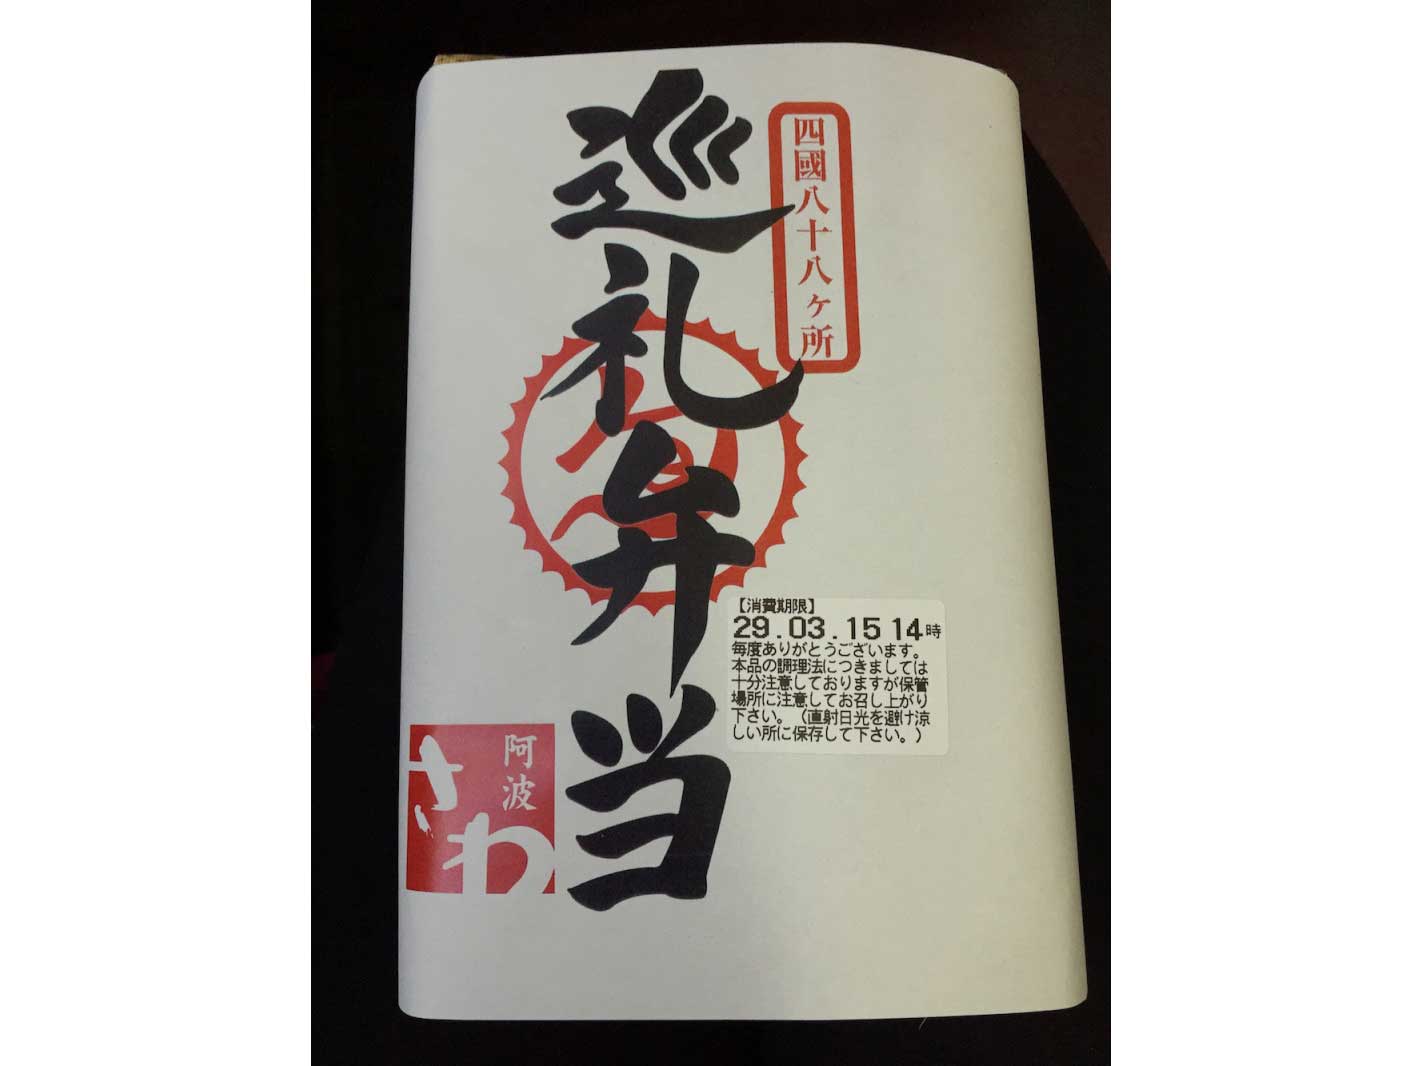 四國八十八ヶ所
巡礼弁当
阿波
さわ
【消費期限】
29.03.15 14時
毎度ありがとうございます。
本品の調理法につきましては
十分注意しておりますが保管
場所に注意してお召し上がり
下さい。（直射日光を避け涼
しい所に保存して下さい。）